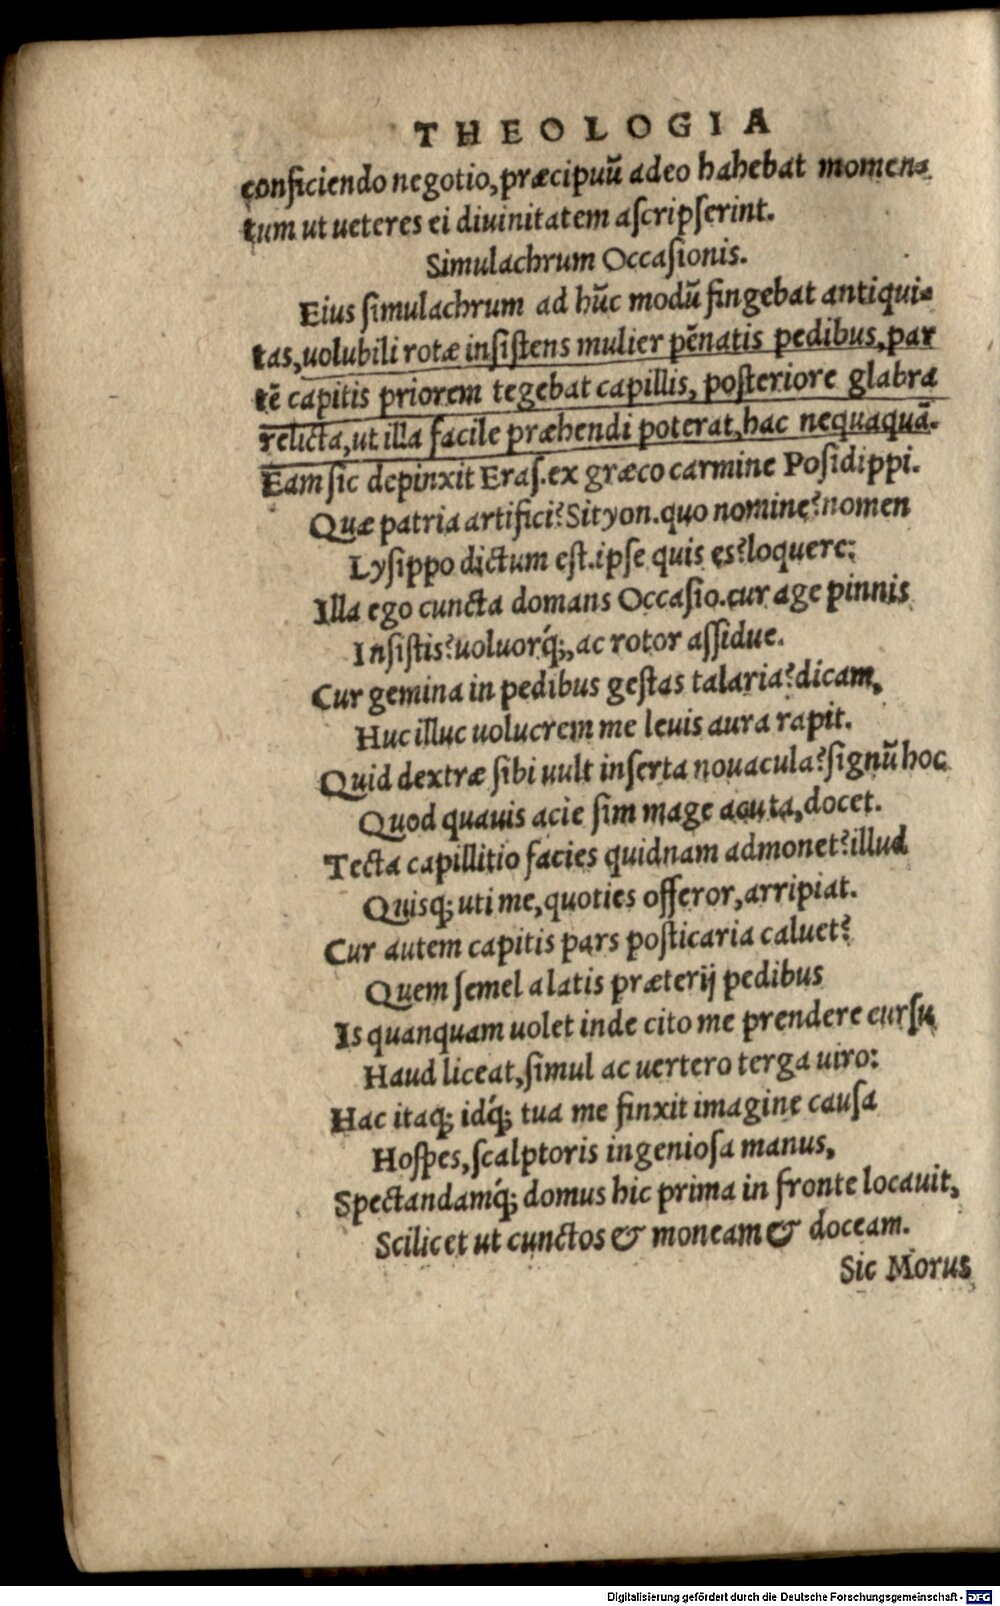 THEOLOGIA
conficiendo negotio, præcipuũ adeo hahebat momen-
tum ut ueteres ei diuinitatem aſcripſerint.
Simulachrum Occaſionis.
Eius ſimulachrum ad hũc modũ fingebat antiqui-
tas, uolubili rotæ inſiſtens mulier pẽnatis pedibus, par
tẽ capitis priorem tegebat capillis, poſteriore glabra
relicta, ut illa facile præhendi poterat, hac nequaquã.
Eam ſic depinxit Eraſ. ex græco carmine Poſidippi.
Quæ patria artifici? Sityon. quo nomine? nomen
Lyſippo dictum eſt. ipſe quis es? loquere:
Illa ego cuncta domans Occaſio. cur age pinnis
Inſiſtis? uoluorq́;, ac rotor aſſidue.
Cur gemina in pedibus geſtas talaria? dicam,
Huc illuc uolucrem me leuis aura rapit.
Quid dextræ ſibi uult inſerta nouacula? ſignũ hoc
Quod quauis acie ſim mage acuta, docet.
Tecta capillitio facies quidnam admonet? illud
Quisq; uti me, quoties offeror, arripiat.
Cur autem capitis pars poſticaria caluet?
Quem ſemel alatis præterij pedibus
Is quanquam uolet inde cito me prendere curſu
Haud liceat, ſimul ac uertero terga uiro:
Hac itaq; idq́; tua me finxit imagine cauſa
Hoſpes, ſcalptoris ingenioſa manus,
Spectandamq́; domus hic prima in fronte locauit,
Scilicet ut cunctos & moneam & doceam.
Sic Morus
Digitalisierung gefördert durch die Deutsche Forschungsgemeinschaft - DFG